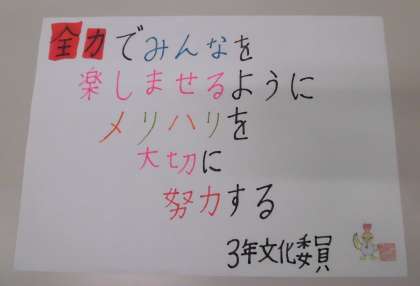 全力でみんなを
楽しませるように
メリハリを
大切に
努力する
3年文化委員